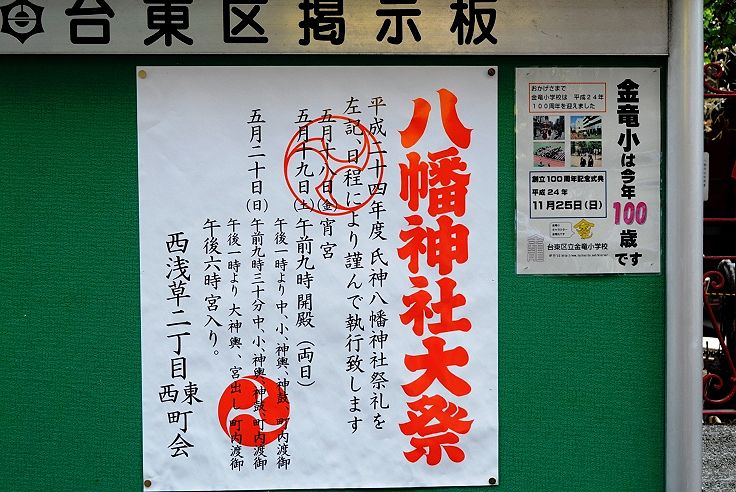 台東区掲示板
八幡神社大祭
平成二十四年度 氏神八幡神社祭礼を
左記、日程により謹んで執行致します
五月十八日(金) 宵宮
五月十九日(土) 午前九時開殿(両日)
午後一時より 中、小、神輿、神鼓、町内渡御
五月二十日(日) 午前九時三十分中、小、神輿、神鼓、町内渡御
午後一時より 大神輿、宮出し 町内渡御
午後六時宮入り。
西浅草二丁目 東西町会
金竜小は今年100歳です
おかげさまで
金竜小学校は 平成24年
100周年を迎えました
創立100周年記念式典
平成24年
11月25日(日)
台東区立金竜小学校